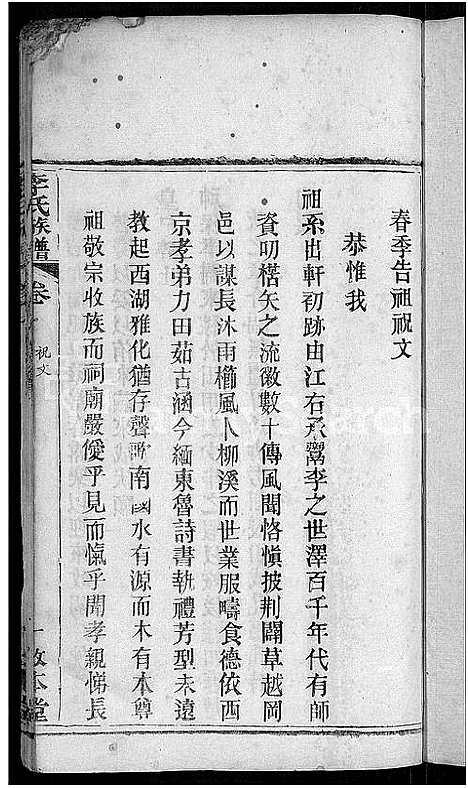 春季告祖祝文
恭惟我
祖系出軒初跡由江右承鬻李之世澤百千年代有師
資叨楛矢之流徽數十傳風聞恪慎披荆闢草越岡
邑以謀長沐雨櫛風卜柳溪而世業服疇食德依西
京孝弟力田茹古涵今緬東魯詩書執禮芳型未遠
教起西湖雅化猶存聲歌南國水有源而木有本尊
祖敬宗收族而祠廟嚴僾乎見而愾乎聞孝親悌長
李氏族譜
卷
祝文
一
敦本堂